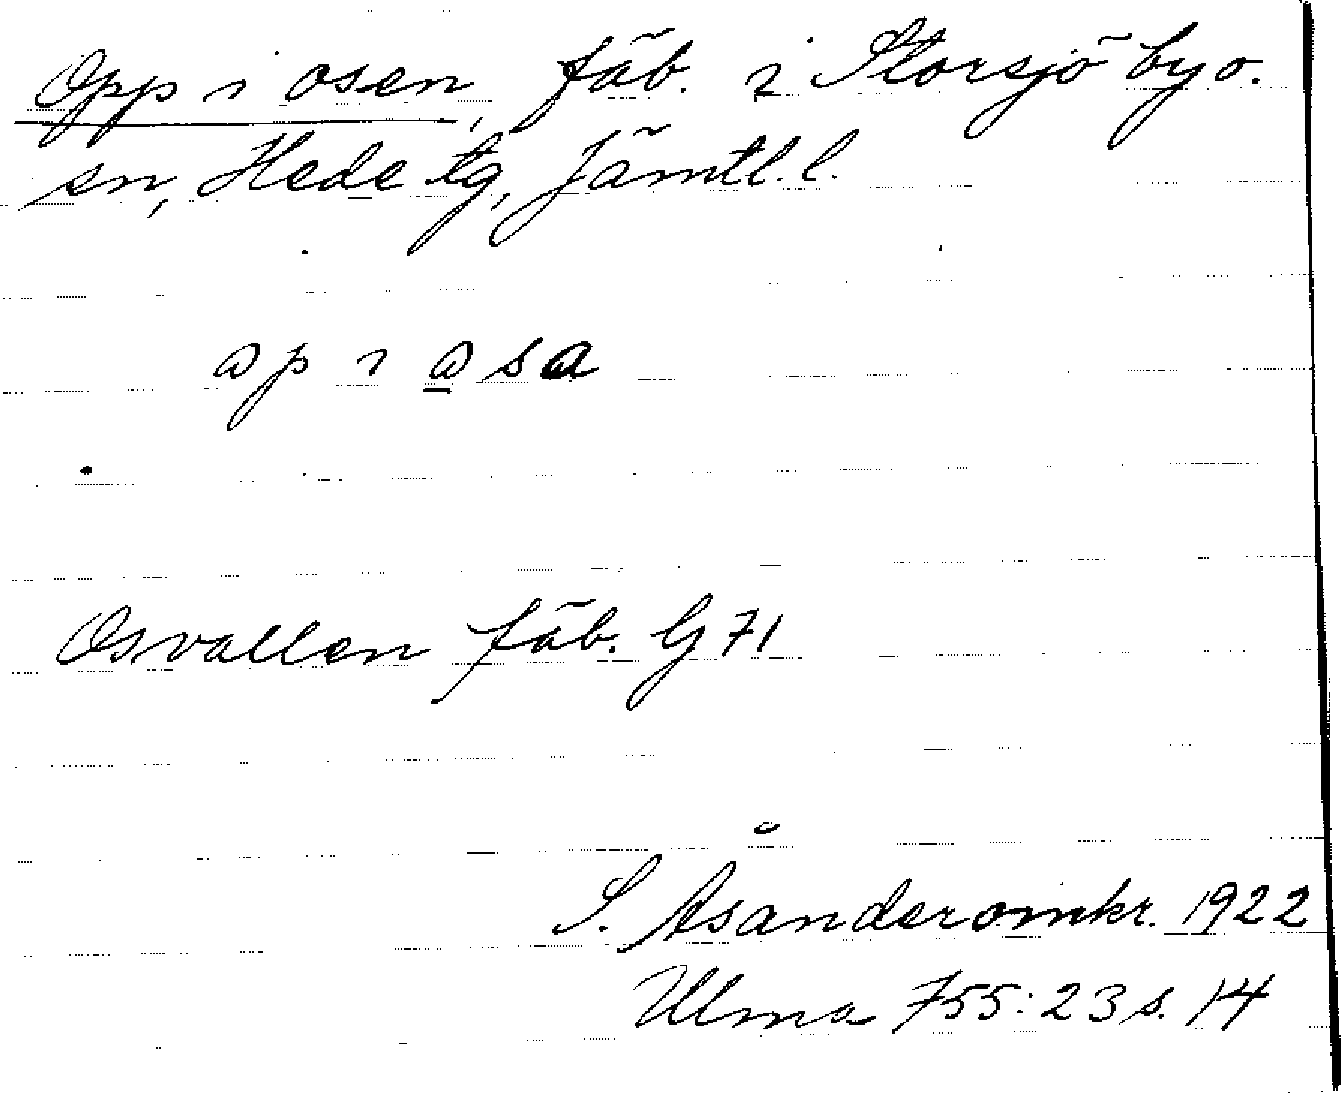 Opp i osen, fäb. i Storsjö by o.
sn, Hede tg, Jämtl. l.
ap ı a̲ sa
Osvallen fäb. G 71
S. Åsander omkr. 1922
Ulma 755:23 s. 14